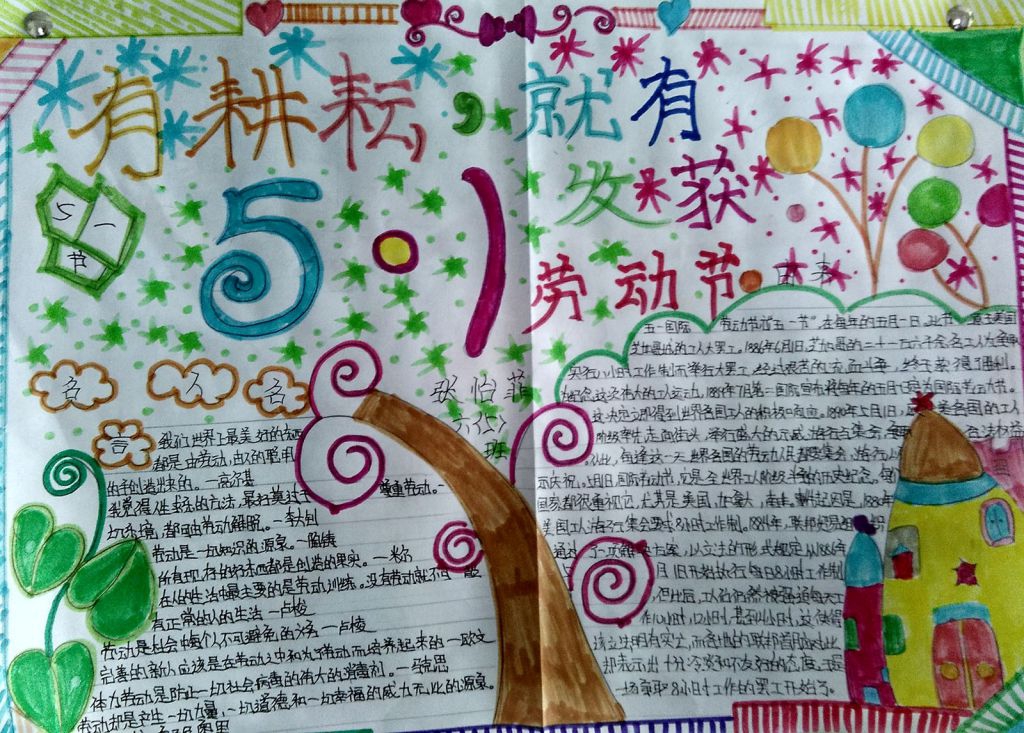 有耕耘，就有
发获
5·1
劳动节
由来
五一
节
名人名
言
张怡菲
六(2)
班
我们世界上最美好的东西
都是由劳动、由人的聪明
的手创造出来的。—高尔基
我觉得人生求乐的方法，最好莫过于尊重劳动。一
切乐境，都可由劳动得来，
解脱。—李大钊
劳动是一切知识的源泉。—陶铸
所有现存的好东西都是创造的果实。—米尔
在人的生活中最主要的是劳动训练。没有劳动就不可能
有正常的人的生活—卢梭
劳动是社会中每个人不可避免的义务—卢梭
完善的新人应该是在劳动之中和为了劳动而培养起来的—欧文
体力劳动是防止一切社会病毒的伟大的消毒剂。—马克思
劳动却是产生一切力量、一切道德和一切幸福的威力无比的源泉。
五一国际劳动节亦"五一节"，在每年的五月一日。此节源于美国
芝加哥城的工人大罢工。1886年
实行八小时工作制而举行大罢工，经过艰苦的流血斗争，终于获得了胜利。
为纪念这次伟大的工人运动，1889年7月第二国际宣布将每年的五月一日定为国际劳动节。
这一决定立即得到世界各国工人的积极响应。1890年5月1日，欧美各国的工人
阶级率先走向街头，举行盛大的示威游行与集会，争取合法权益。
从此，每逢这一天世界各国的劳动人民都要集会、游行，以
示庆祝。
国家都很重视它，尤其是美国、加拿大、南非。
美国工人游行集会要求8小时工作制。1884年，
通过了一项解决方案，以立法的形式规定从1886年
5月1日开始执行每日8小时工作制
但此后，工人们仍然被强迫每天工
作10小时、12小时，甚至14小时，这使得
该立法明有实亡，而各地的联邦官员对此
却表示出十分冷漠和不友好的态度，于是
一场争取8小时工作的罢工开始了。